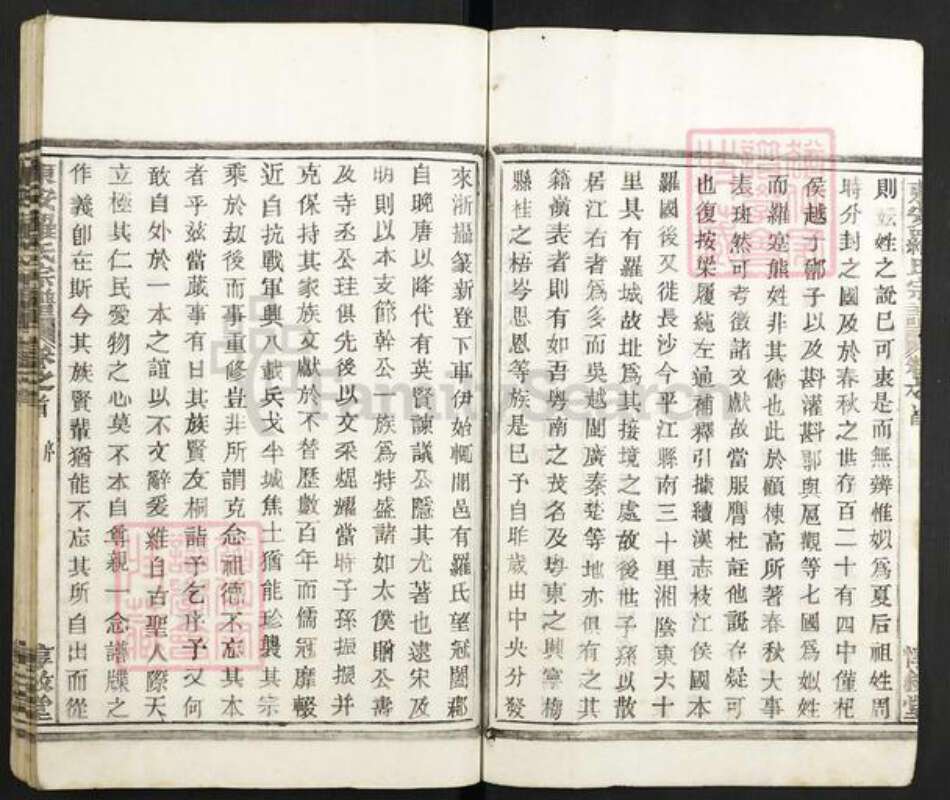 則妘姓之說已可衷是而無辨惟姒爲夏后祖姓周
時分封之國及於春秋之世存百二十有四中僅杞
侯越子鄫子以及斟灌斟鄩與扈觀等七國爲姒姓
而羅寔熊姓非其儔也此於顧棟高所著春秋大事
表班然可考徵諸文獻故當服膺杜註他說存疑可
也復按梁履繩左通補釋引據續漢志枝江侯國本
羅國後又徙長沙今平江縣南三十里湘陰東六十
里具有羅城故址爲其接境之處故後世子孫以散
居江右者爲多而吳越閩廣秦楚等地亦俱有之其
籍嶺表者則有如吾粵南之茂名及粵東之興寧梅
縣桂之梧岑思恩等族是巳予自昨歲由中央分發
來浙攝篆新登下車伊始輒聞邑有羅氏望冠闔郡
自晚唐以降代有英賢諫議公隱其尤著也逮宋及
明則以本支節幹公一族爲特盛諸如太僕贈公壽
及寺丞公珪俱先後以文采焜耀當時子孫振振并
克保持其家族文獻於不替歷數百年而儒冠靡輟
近自抗戰軍興八載兵戈半城焦土猶能珍襲其宗
乘於劫後而事重修豈非所謂克念祖德不忘其本
者乎茲當蕆事有日其族賢友桐詣予乞序予又何
敢自外於一本之誼以不文辭爰維自古聖人際天
立極其仁民愛物之心莫不本自尊親一念譜牒之
作義卽在斯今其族賢輩猶能不忘其所自出而從
東安羅氏宗譜 卷之首 序
惇敘堂
FamilySearch